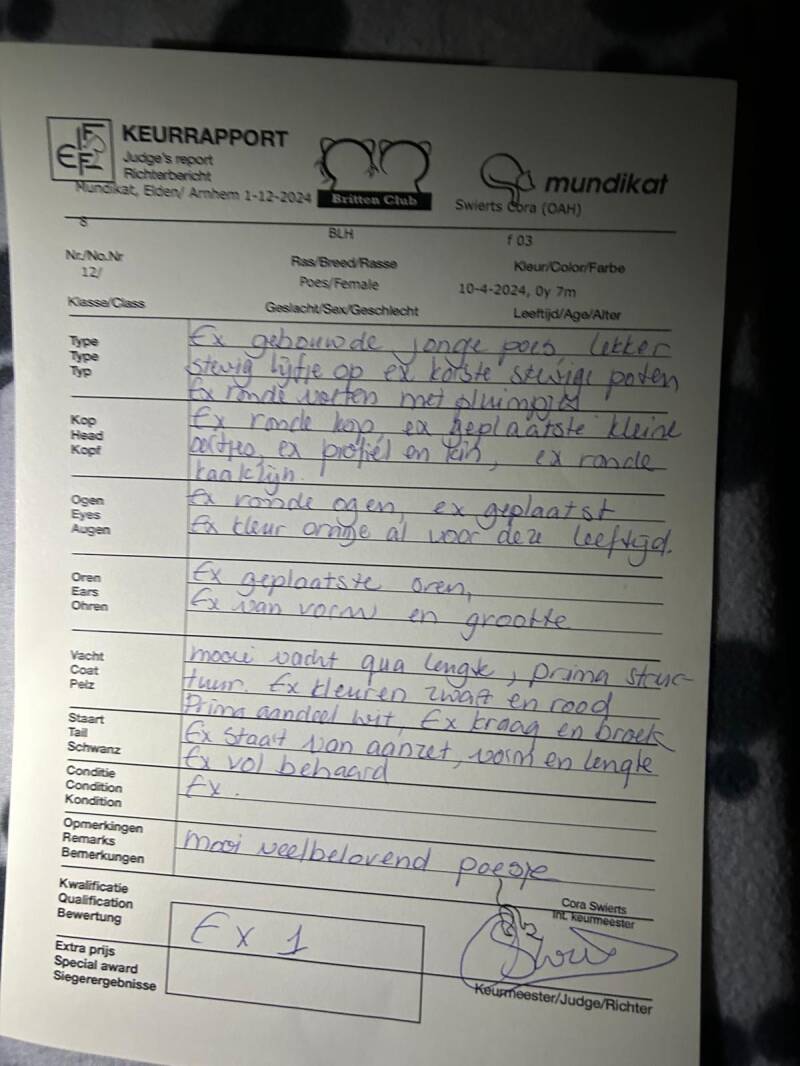 FIFe
KEURRAPPORT
Judge's report
Richterbericht
Mundikat, Elden/ Arnhem 1-12-2024
Britten Club
mundikat
Swierts Cora (OAH)
8
BLH
f 03
Nr./No.Nr
Ras/Breed/Rasse
Kleur/Color/Farbe
12/
Poes/Female
10-4-2024, 0y 7m
Klasse/Class
Geslacht/Sex/Geschlecht
Leeftijd/Age/Alter
Type
Type
Typ
Ex gebouwde jonge poes lekker
stevig lijfje op ex korste stevige poten
Ex ronde voeten met pluimpjes
Kop
Head
Kopf
Ex ronde kop, ex geplaatste kleine
oortjes, ex profiel en kin, ex ronde
kaaklijn.
Ogen
Eyes
Augen
Ex ronde ogen, ex geplaatst
Ex kleur oranje al voor deze leeftijd.
Oren
Ears
Ohren
Ex geplaatste oren,
Ex van vorm en grootte
Vacht
Coat
Pelz
mooi vacht qua lengte, prima struc-
tuur. Ex kleuren zwart en rood
Prima aandeel wit, Ex kraag en broek
Staart
Tail
Schwanz
Ex staart van aanzet, vorm en lengte
Ex vol behaard
Conditie
Condition
Kondition
Ex.
Opmerkingen
Remarks
Bemerkungen
mooi veelbelovend poesje
Kwalificatie
Qualification
Bewertung
Ex 1
Cora Swierts
Int. keurmeester
Extra prijs
Special award
Siegerergebnisse
Keurmeester/Judge/Richter